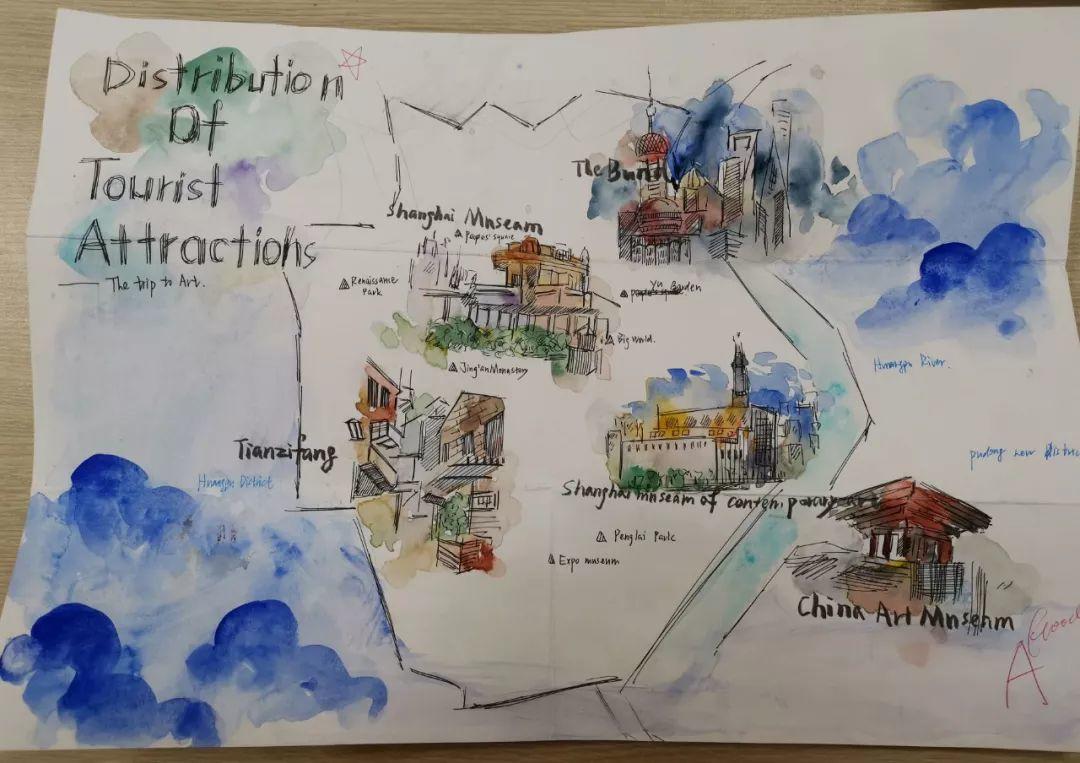 Distribution
Of
Tourist
Attractions
The trip to Art.
The Bund
Shanghai Mnseam
Papos' square
Renaissance
Park
Yu Garden
Big World.
Jing'an Monastery
Huangpu River.
Tianzifang
Huangpu District
pudong new
Shanghai mnseam of contemporary art
Penglai Park
Expo mnseum
China Art Mnsehm
Good
A